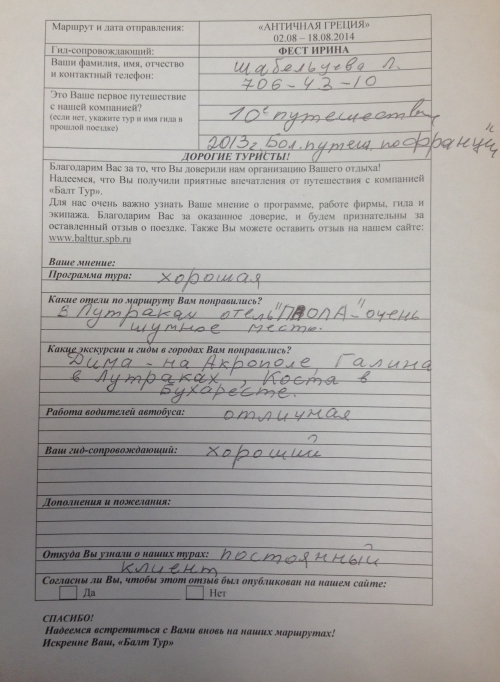 Маршрут и дата отправления:
«АНТИЧНАЯ ГРЕЦИЯ»
02.08 – 18.08.2014
Гид-сопровождающий:
ФЕСТ ИРИНА
Ваши фамилия, имя, отчество
и контактный телефон:
Шабельцева Л.
706-43-10
Это Ваше первое путешествие
с нашей компанией?
(если нет, укажите тур и имя гида в
прошлой поездке)
10е путешествие
2013г Бол. путеш. по Франции"
ДОРОГИЕ ТУРИСТЫ!
Благодарим Вас за то, что Вы доверили нам организацию Вашего отдыха!
Надеемся, что Вы получили приятные впечатления от путешествия с компанией
«Балт Тур».
Для нас очень важно узнать Ваше мнение о программе, работе фирмы, гида и
экипажа. Благодарим Вас за оказанное доверие, и будем признательны за
оставленный отзыв о поездке. Также Вы можете оставить отзыв на нашем сайте:
www.balttur.spb.ru
Ваше мнение:
Программа тура: хорошая
Какие отели по маршруту Вам понравились?
в Лутраках отель "ПАОЛА" - очень
шумное место.
Какие экскурсии и гиды в городах Вам понравились?
Дима - на Акрополе, Галина
в Лутраках, Коста в
Бухаресте.
Работа водителей автобуса: отличная
Ваш гид-сопровождающий: хороший
Дополнения и пожелания:
Откуда Вы узнали о наших турах: постоянный
клиент
Согласны ли Вы, чтобы этот отзыв был опубликован на нашем сайте:
Да Нет
СПАСИБО!
Надеемся встретиться с Вами вновь на наших маршрутах!
Искренне Ваш, «Балт Тур»